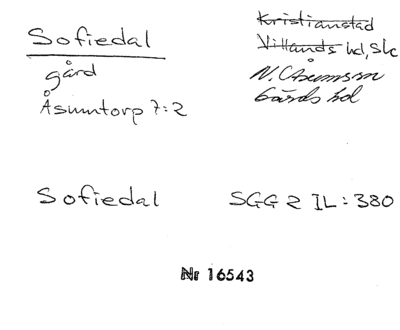 Sofiedal
gård
Åsumtorp 7:2
Kristianstad
Villands hd, Sk
N. Åsums sn
Gärds hd
Sofiedal
SGG 2 IL: 380
Nr 16543